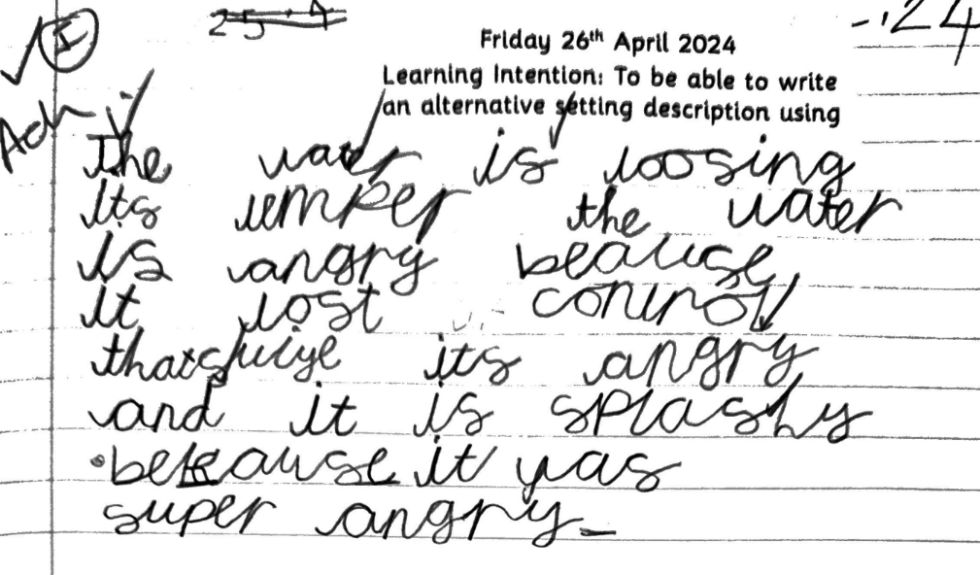 25-4
-.24
Friday 26th April 2024
Learning Intention: To be able to write
an alternative setting description using
Ach
The water is loosing
its temper the water
is angry beause
it lost control
thats wiye its angry
and it is splashy
because it was
super angry